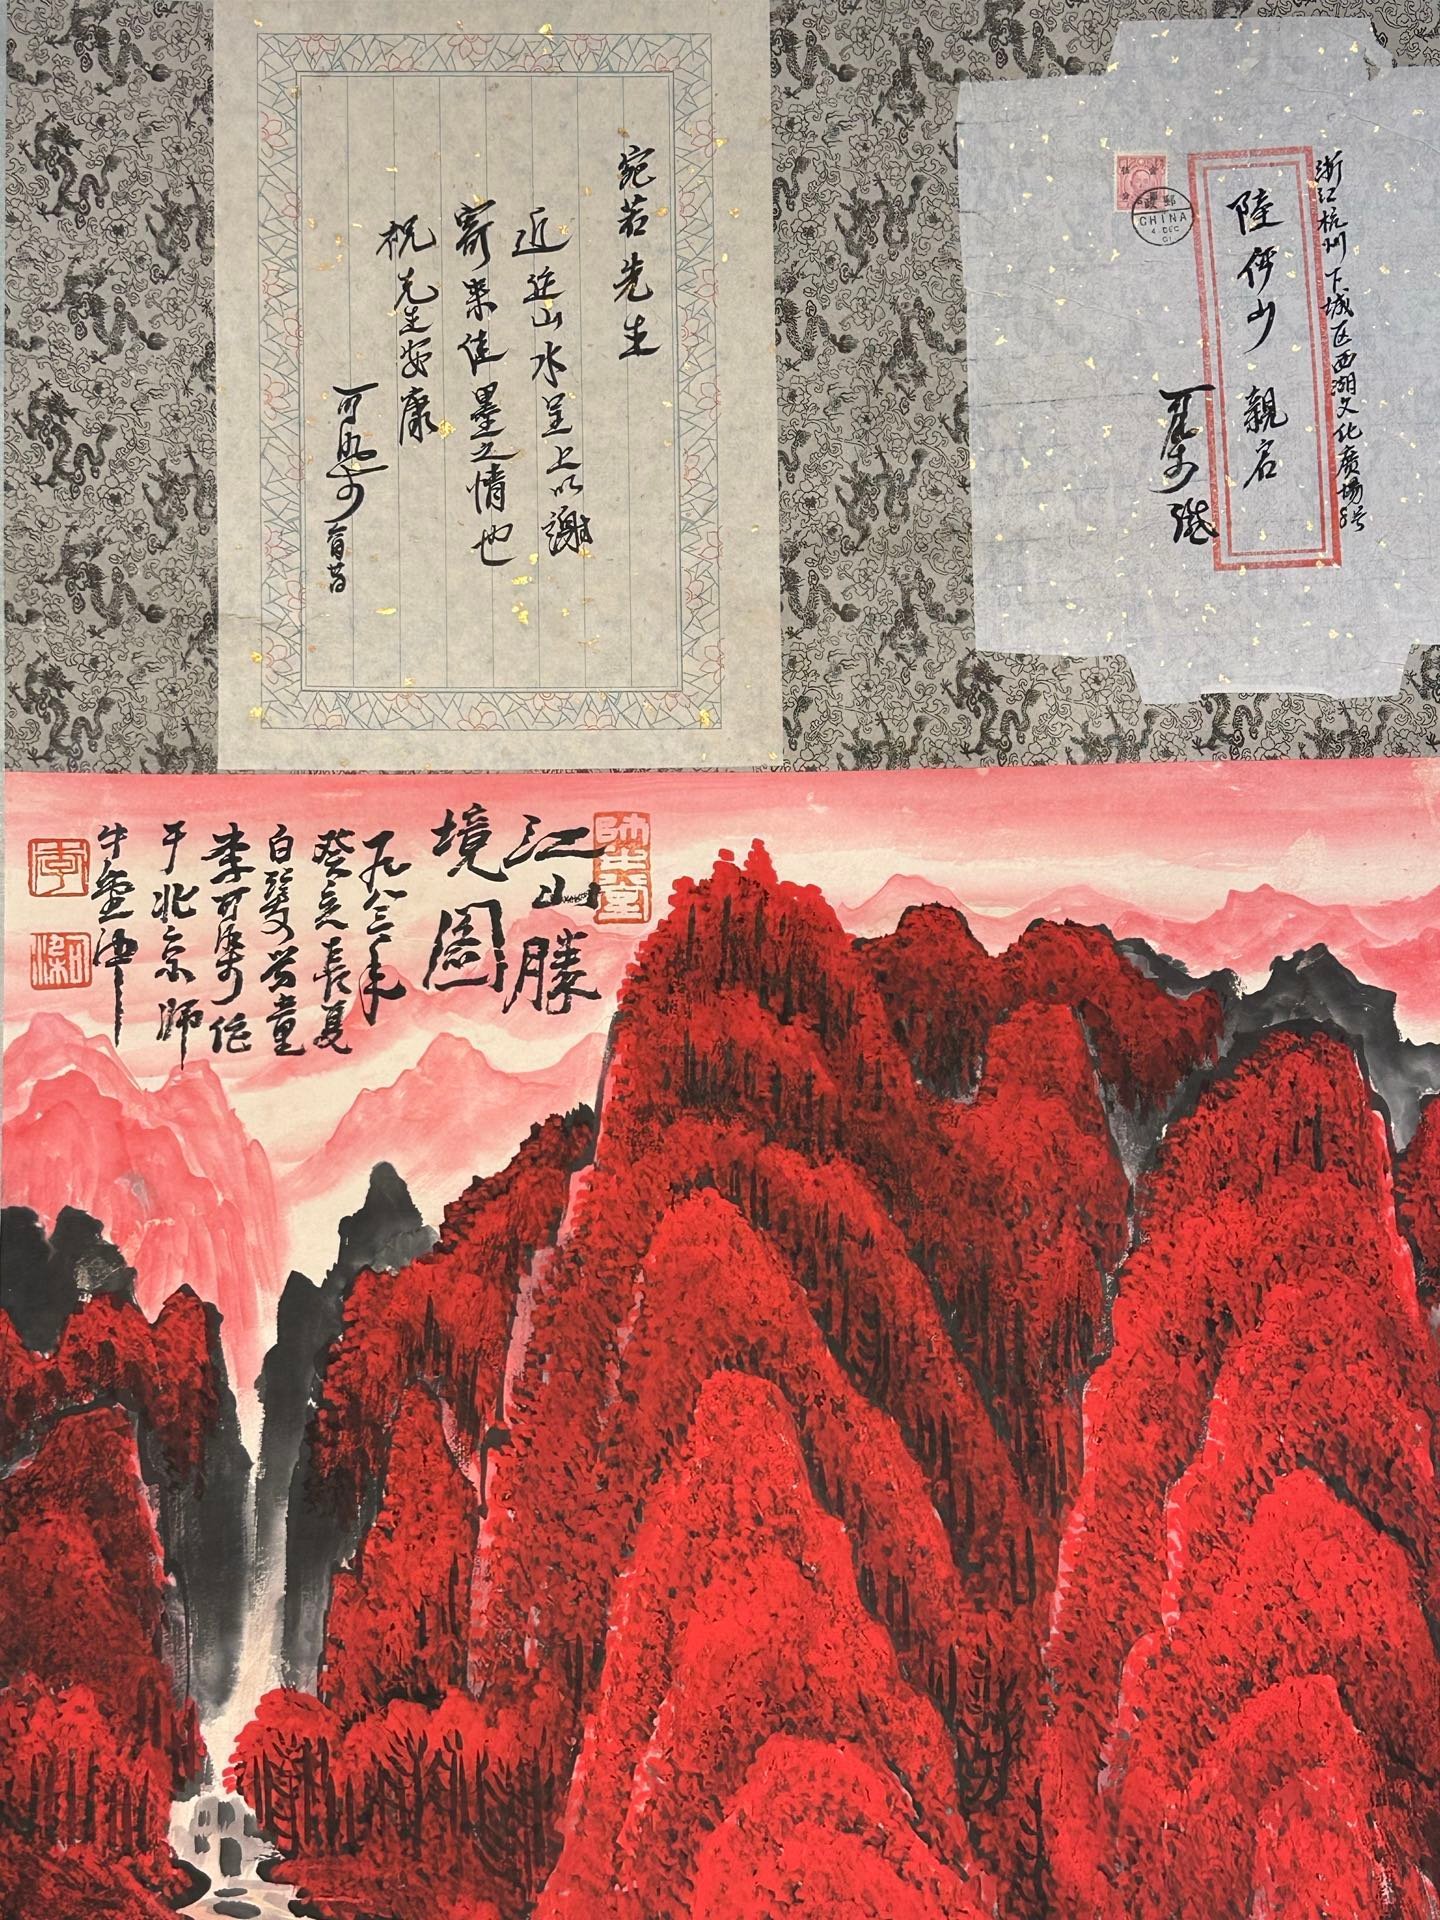 宛若先生
近迠山水呈上以謝
寄来佳墨之情也
祝先生安康
可染
浙江杭州下城区西湖文化廣場8号
親启
可染 缄
郵政
CHINA
4 DEC
江山勝
境圖
一九八三年
癸亥長夏
白髮學童
李可染作
于北京師
牛堂中
師牛堂
李
可染